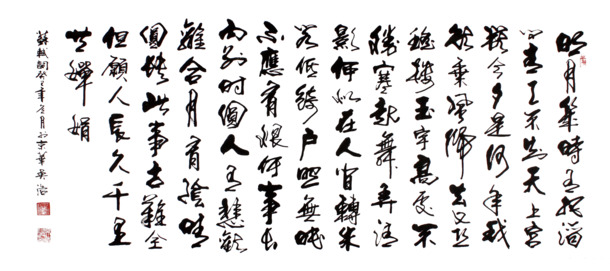 明月幾時有把酒
問青天不知天上宮
闕今夕是何年我
欲乘風歸去又恐
瓊樓玉宇高處不
勝寒起舞弄清
影何似在人間轉朱
閣低綺戶照無眠
不應有恨何事長
向別時圓人有悲歡
離合月有陰晴
圓缺此事古難全
但願人長久千里
共嬋娟
蘇軾詞 年冬月於京華